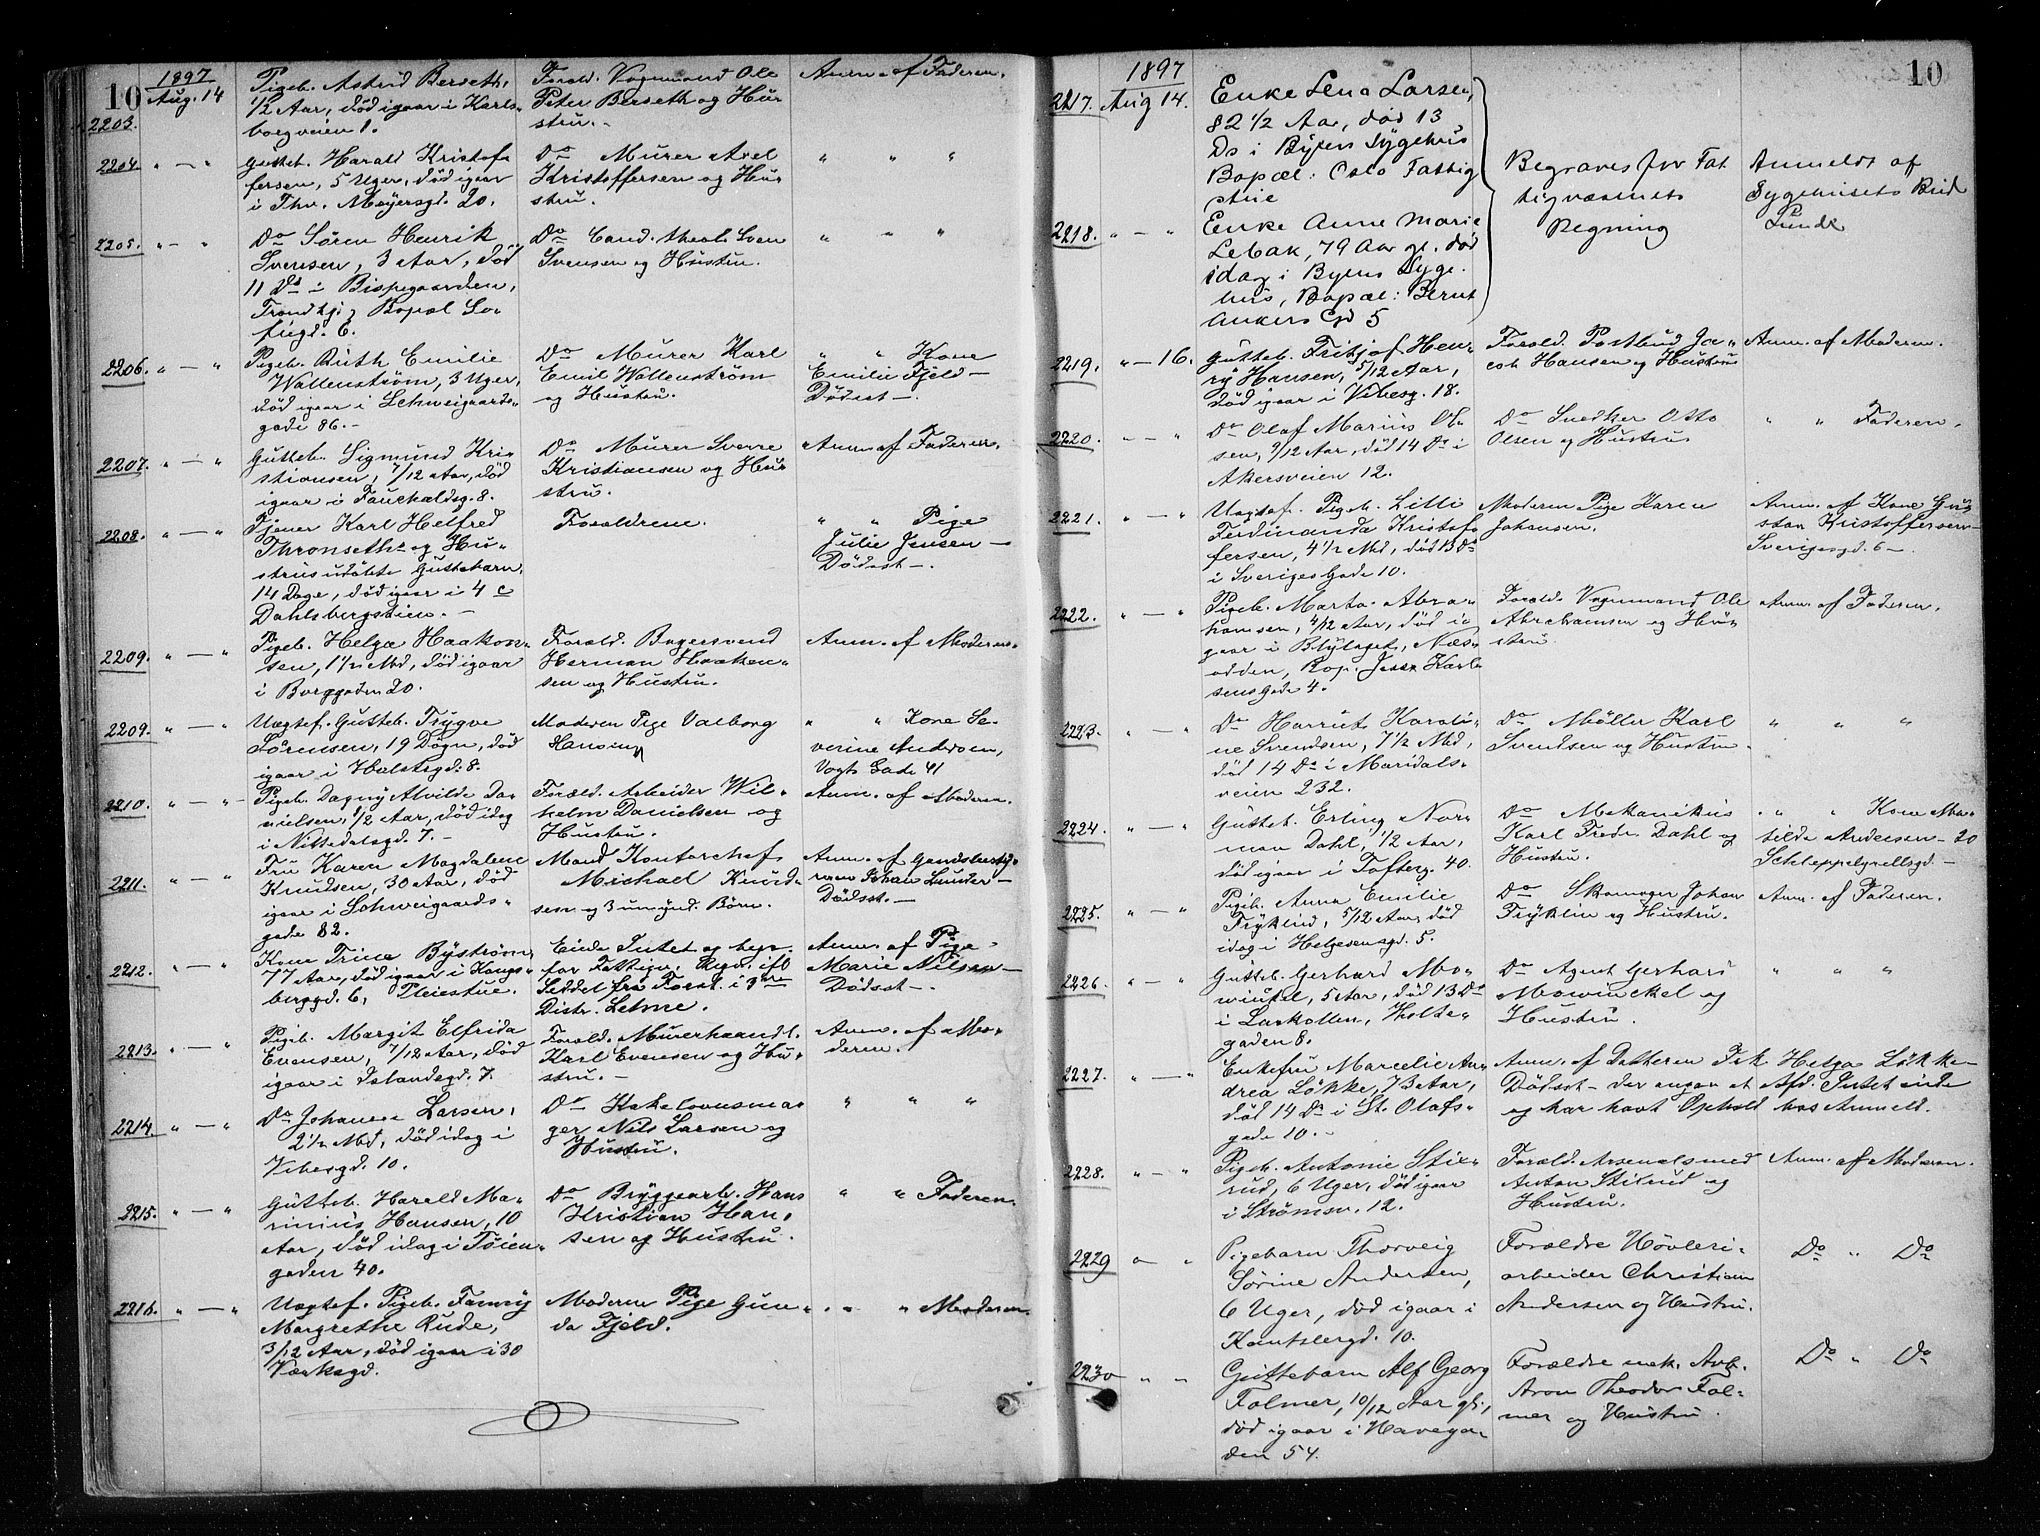 10
1897
Aug. 14
2203.
Pigeb. Astrid Berseth,
1/2 Aar, död igaar i Karls-
borgveien 1.
Foræld. Vognmand Ole
Peter Berseth og Hu-
stru.-
Anm. af Faderen.
2204. " — "
Gutteb. Harald Kristof-
fersen, 5 Uger, död igaar
i Thv. Meyersgd. 20.
Do Murer Axel
Kristoffersen og Hu-
stru.
" " "
2205. " — "
Do Sören Henrik
Svensen, 3 Aar, död
11 Ds i Bispegaarden,
Trondhj., Bopæl So-
fiegd. 6.
Do Cand. theol. Sven
Svensen og Hustru.
" " "
2206. " — "
Pigeb. Ruth Emilie
Wallenström, 3 Uger,
död igaar i Schweigaards-
gade 86.-
Do Murer Karl
Emil Wallenström
og Hustru.
" " Kone
Emilie Fjeld —
Dödsst —.
2207. " — "
Gutteb. Sigmund Kri-
stiansen, 7/12 Aar, död
igaar i Fauchaldsg. 8.
Do Murer Sverre
Kristiansen og Hu-
stru.
Anm. af Faderen.
2208. " — "
Tjener Karl Helfred
Thronseths og Hu-
strus udöbte Guttebarn,
14 Dage, död igaar i 4 c
Dahlsbergstien. —
Forældrene.
" " Pige
Julie Jensen —
Dödsst —.
2209. " — "
Pigeb. Helga Haakon-
sen, 1 1/2 Md, död igaar
i Borggaden 20.
Foræld. Bagersvend
Herman Haaken-
sen og Hustru.
Anm. af Moderen.
2209. " — "
Uægtef. Gutteb. Trygve
Sörensen, 19 Dögn, död
igaar i Holstsgd. 8.
Moderen Pige Valborg
Hansen
" " Kone Se-
verine Andersen,
Vogts Gade 41
2210. " — "
Pigeb. Dagny Alvilde Da-
nielsen, 1/2 Aar, död idag
i Nittedalsgd. 7. —
Foræld. Arbeider Wil-
helm Danielsen og
Hustru.
Anm. af Moderen.
2211. " — "
Fru Karen Magdalene
Knudsen, 30 Aar, död
igaar i Schweigaards-
gade 82.
Mand Kontorchef
Michael Knud-
sen og 3 umynd. Börn.
Anm. af
Johan Lunder —
Dödsst. —
2212. " — "
Kone Trine Byström,
77 Aar, död igaar i Kongs-
berggd. 6, Pleiestue.
Eiede Intet og begr.
for Fattigv. Regn. ifl
Seddel fra Forst. i 9de
Distr. Lelme.
Anm. af Pige
Marie Nilsen —
Dödsst —.
2213. " — "
Pigeb. Margit Elfrida
Evensen, 7/12 Aar, död
igaar i Islandsgd. 7.
Foræld. Murerhaandl.
Karl Evensen og Hu-
stru. —
Anm. af Mo-
deren.
2214. " — "
Do Johanne Larsen,
2 1/2 Md, död idag i
Vibesgd. 10.
Do Kakelovnsma-
ger Nils Larsen og
Hustru.
" " "
2215. " — "
Gutteb. Harald Ma-
rinius Hansen, 10
Aar, död idag i Töien-
gaden 40.
Do Bryggearb. Hans
Kristian Han-
sen og Hustru.
" " Faderen.
2216. " — "
Uægtef. Pigeb. Fanny
Margrethe Rude,
3/12 Aar, död igaar i 30
Værksgd.
Moderen Pige Gun-
da Fjeld.
" " Moderen.
10
1897
2217. Aug 14.
Enke Lena Larsen,
82 1/2 Aar, död 13
Ds i Byens Sygehus
Bopæl: Oslo Fattig
stue
2218. " — "
Enke Anne Marie
Lebak, 79 Aar gl. död
idag i Byens Syge-
hus, Bopæl: Bernt
Ankers Gd 5
Begraves for Fat
tigvæsenets
Regning
Anmeldt af
Sygehusets Bud
Lunde
2219. " — 16.
Gutteb. Fritjof Hen-
ry Hansen, 5/12 Aar,
död igaar i Vibesg. 18.
Foræld. Postbud Ja-
cob Hansen og Hustru
Anm. af Moderen.
2220. " — "
Do Olaf Marius Ol-
sen, 7/12 Aar, död 14 Ds i
Akersveien 12.
Do Snedker Otto
Olsen og Hustru
" " Faderen.
2221. " — "
Uægtef. Pigeb. Lilli
Ferdinanda Kristof-
fersen, 4 1/2 Md, död 13 Ds
i Sveriges Gade 10.
Moderen Pige Karen
Johansen.
Anm. af Kone Gu-
stav Kristoffersen —
Sverigesgd. 6 —.
2222. " — "
Pigeb. Marta Abra-
hamsen, 4/12 Aar, död i-
gaar i Blylaget, Næs-
odden, Bop. Jess Karl-
sens Gade 4.
Foræld. Vognmand Ole
Abrahamsen og Hu-
stru
Anm. af Faderen.
2223. " — "
Do Harriet Karoli-
ne Svendsen, 7 1/2 Md,
död 14 Ds i Maridals-
veien 232.
Do Möller Karl
Svendsen og Hustru.
" " "
2224. " — "
Gutteb. Erling Nor-
man Dahl, 1/2 Aar,
död igaar i Tofteg. 40.
Do Mekanikus
Karl Fredr. Dahl og
Hustru.
" " Kone Ma-
tilde Andersen — 20
Schleppelgrellsgd. —
2225. " — "
Pigeb. Anna Emilie
Fryklind, 5/12 Aar, död
idag i Helgesensgd. 5.
Do Skomager Johan
Fryklin og Hustru.
Anm. af Faderen.
2226. " — "
Gutteb. Gerhard Mo-
winkel, 5 Aar, död 13 Ds
i Larkollen, Holte-
gaden 8.
Do Agent Gerhard
Mowinckel og
Hustru.
" " "
2227. " — "
Enkefru Marcelie An-
drea Lökke, 73 Aar,
död 14 Ds i St. Olafs-
gade 10. —
Anm. af Datteren Frk Helga Lökke —
Dödsst — der angav at Afd. Intet eiede
og har havt Ophold hos Anmeld.
2228. " — "
Pigeb. Antonie Stix-
rud, 6 Uger, död igaar
i Strömsv. 12.
Foræld. Arsenalsmed
Anton Stixrud og
Hustru.
Anm. af Moderen.
2229 " — "
Pigebarn Thorveig
Sörine Andersen,
6 Uger, död igaar i
Kantslergd. 10.
Forældre Hövleri-
arbeider Christian
Andersen og Hustru.
Do " Do
2230 " "
Guttebarn Alf Georg
Folmer, 10/12 Aar gl.,
död igaar i Havega-
den 54.
Forældre mek. Arb.
Aron Theodor Fol-
mer og Hustru.
Do " Do